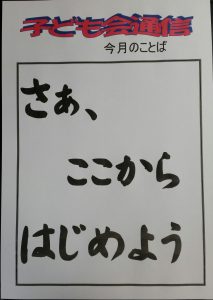 子ども会通信
今月のことば
さぁ、
ここから
はじめよう